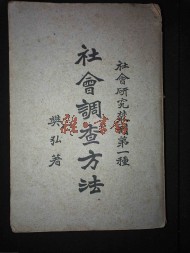 社會研究叢刊第一種
社會調查方法
樊弘著